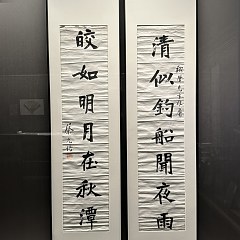 清似釣船聞夜雨
皎如明月在秋潭